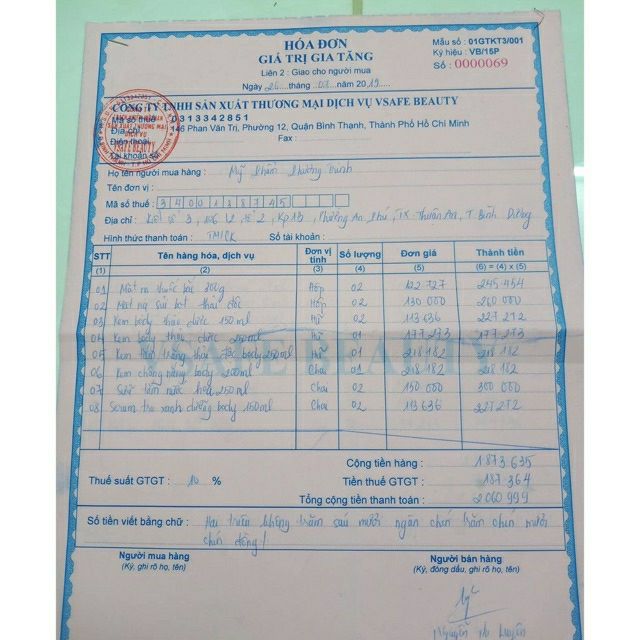 HÓA ĐƠN
GIÁ TRỊ GIA TĂNG
Liên 2 : Giao cho người mua
Mẫu số : 01GTKT3/001
Ký hiệu : VB/15P
Số : 0000069
Ngày 26 tháng 03 năm 2019
CÔNG TY TNHH SẢN XUẤT THƯƠNG MẠI DỊCH VỤ VSAFE BEAUTY
Mã số thuế : 0313342851
Địa chỉ : 146 Phan Văn Trị, Phường 12, Quận Bình Thạnh, Thành Phố Hồ Chí Minh
Điện thoại : Fax :
Tài khoản số :
SẢN XUẤT THƯƠNG MẠI
DỊCH VỤ
VSAFE BEAUTY
Họ tên người mua hàng : Mỹ Phẩm Phương Trinh
Tên đơn vị :
Mã số thuế : 3400188745
Địa chỉ : 3, 2, KP 1B, Phường An Phú, TX Thuận An, T. Bình Dương
Hình thức thanh toán : TM/CK Số tài khoản :
STT Tên hàng hóa, dịch vụ Đơn vị tính Số lượng Đơn giá Thành tiền
(1) (2) (3) (4) (5) (6) = (4) x (5)
01 Mặt nạ thuốc bắc 300g Hộp 02 122 727 245 454
02 Mặt nạ sủi bọt thải độc Hộp 02 130 000 260 000
03 Kem body thảo dược 150ml Hũ 02 113 636 227 272
04 Kem body thảo dược 250ml Hũ 01 177 273 177 273
05 Kem trắng body 250ml Hũ 01 218 182 218 182
06 Kem chống nắng body 200ml Chai 01 218 182 218 182
07 Sữa tắm nước hoa 250ml Chai 02 150 000 300 000
08 Serum trà xanh dưỡng body 150ml Chai 02 113 636 227 272
VSAFE BEAUTY
Cộng tiền hàng : 1 873 635
Thuế suất GTGT : 10 % Tiền thuế GTGT : 187 364
Tổng cộng tiền thanh toán : 2 060 999
Số tiền viết bằng chữ : Hai triệu không trăm sáu mươi ngàn chín trăm chín mươi
chín đồng!
Người mua hàng Người bán hàng
(Ký, ghi rõ họ, tên) (Ký, đóng dấu, ghi rõ họ, tên)
Nguyễn Luyến